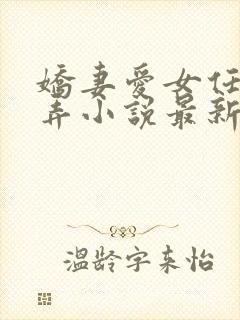 嬌妻愛女任
弄小說最新
溫龄字来怡